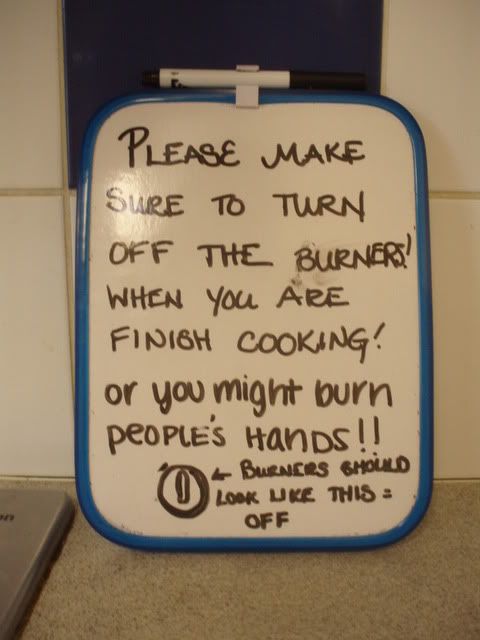 PLEASE MAKE
SURE TO TURN
OFF THE BURNERS!
WHEN YOU ARE
FINISH COOKING!
or you might burn
PEOPLE'S HANDS!!
← BURNERS SHOULD
LOOK LIKE THIS =
OFF